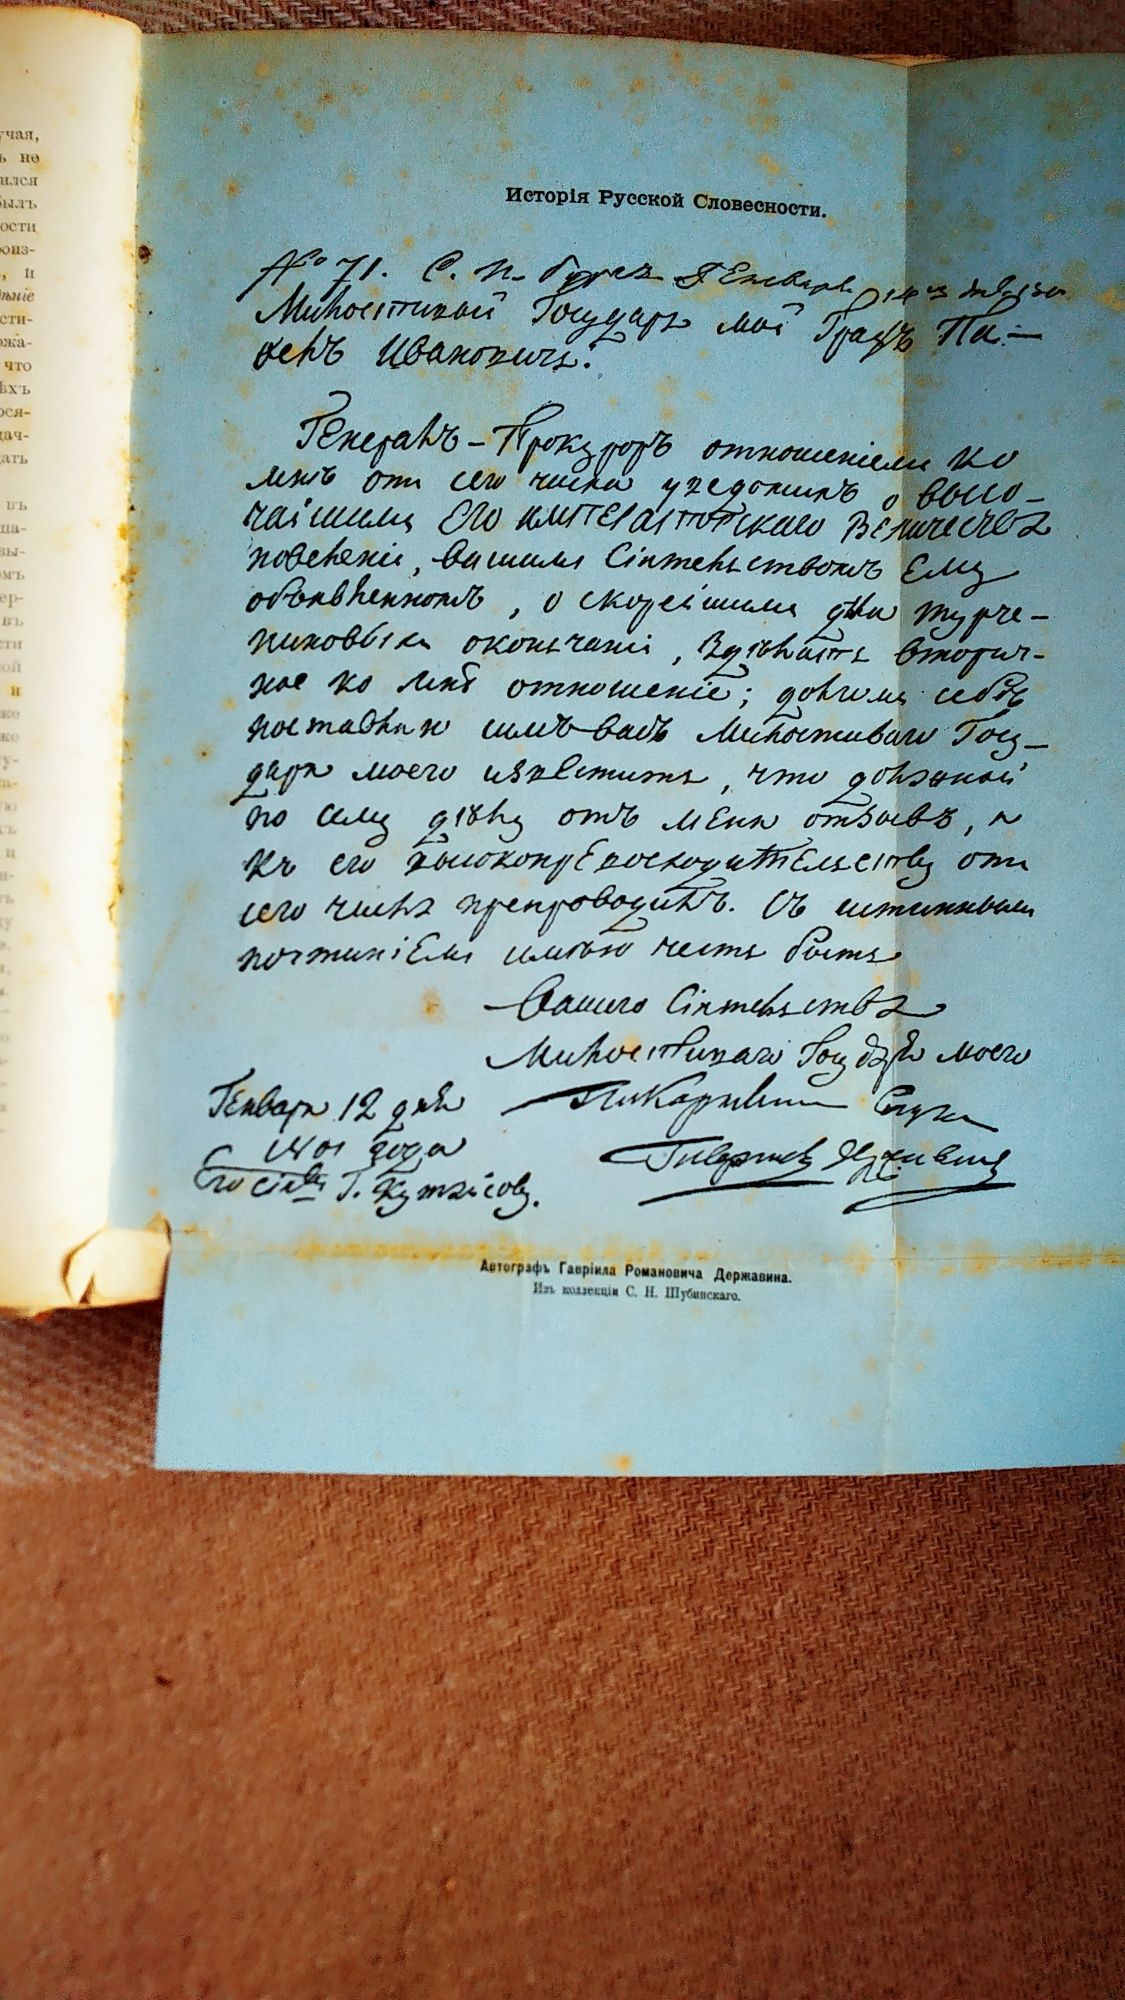 учая,
ь не
ился
былъ
ости
роиз-
, и
ѣніе
сти-
ожа-
что
ѣхъ
рся-
дач-
дать
въ
ша-
вы-
омъ
ер-
въ
сти
ной
и
же
же
Исторія Русской Словесности.
№ 71. С. П. бургъ Генваря
Милостивой Государь мой Графъ Па-
велъ Ивановичь!
Генералъ-Прокуроръ отношеніемъ ко
мнѣ отъ сего числа уведомилъ о высо-
чаишимъ Его императорскаго Величества
повеленіи, вашимъ Сіятельствомъ Ему
объявленномъ, о скорейшимъ дѣла турче-
ниновыхъ окончаніи, Здѣлать вторич-
ное ко мнѣ отношеніе; долгомъ себѣ
поставляю симъ васъ Милостиваго Госу-
даря моего извѣстить, что должной
по сему дѣлу отъ меня отзывъ,
къ его высокопревосходительству отъ
сего числа препроводилъ. Съ истиннымъ
почтиніемъ имѣю честь быть
Вашего Сіятельства
Милостиваго Государя моего
Покорнейши Слуга
Генваря 12 дня
1801 года
Гавриилъ Державинъ
Его сіятву Г. Кутайсову.
Автографъ Гавріила Романовича Державина.
Изъ коллекціи С. Н. Шубинскаго.